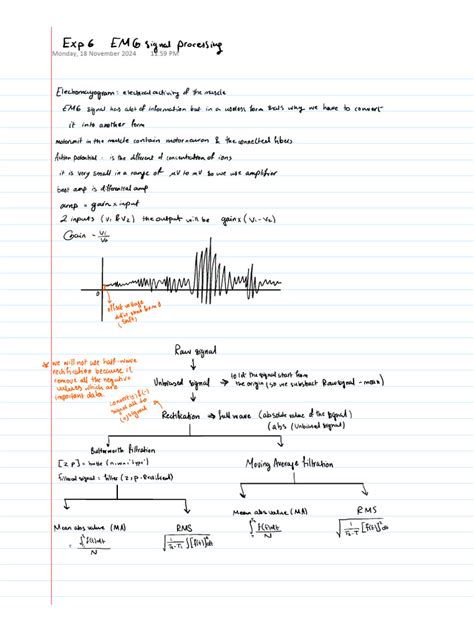 Exp 6 EMG signal processing
Monday, 18 November 2024 11:59 PM
Electromyogram : electrical activity of the muscle
EMG signal has alot of information but in a useless form thats why we have to convert
it into another form
motorunit in the muscle contain motor neuron & the connected fibers
Action potential : is the different of concentration of ions
it is very small in a range of μV to mV so we use amplifier
best amp is differential amp
amp = gain x input
2 inputs (V1 & V2) the output will be gain x (V1 - V2)
Gain = Vi/Vo
0
offset voltage
start from 0
(shift)
Raw signal
* we will not use half-wave
rectification because it
removes all the negative
values which are
important data.
Unbiased signal → to let the signal start from
the origin (so we subtract Raw signal - mean)
convert (+)&(-)
signal all to
(+) signal
Rectification → full wave (absolute value of the signal)
(abs (Unbiased signal)
Butterworth filtration
Moving Average filtration
[z, p] = butter (n, wn, 'type')
filtered signal = filter (z, p, Rectified)
Mean abs value (MA)
RMS
Mean abs value (MA)
RMS